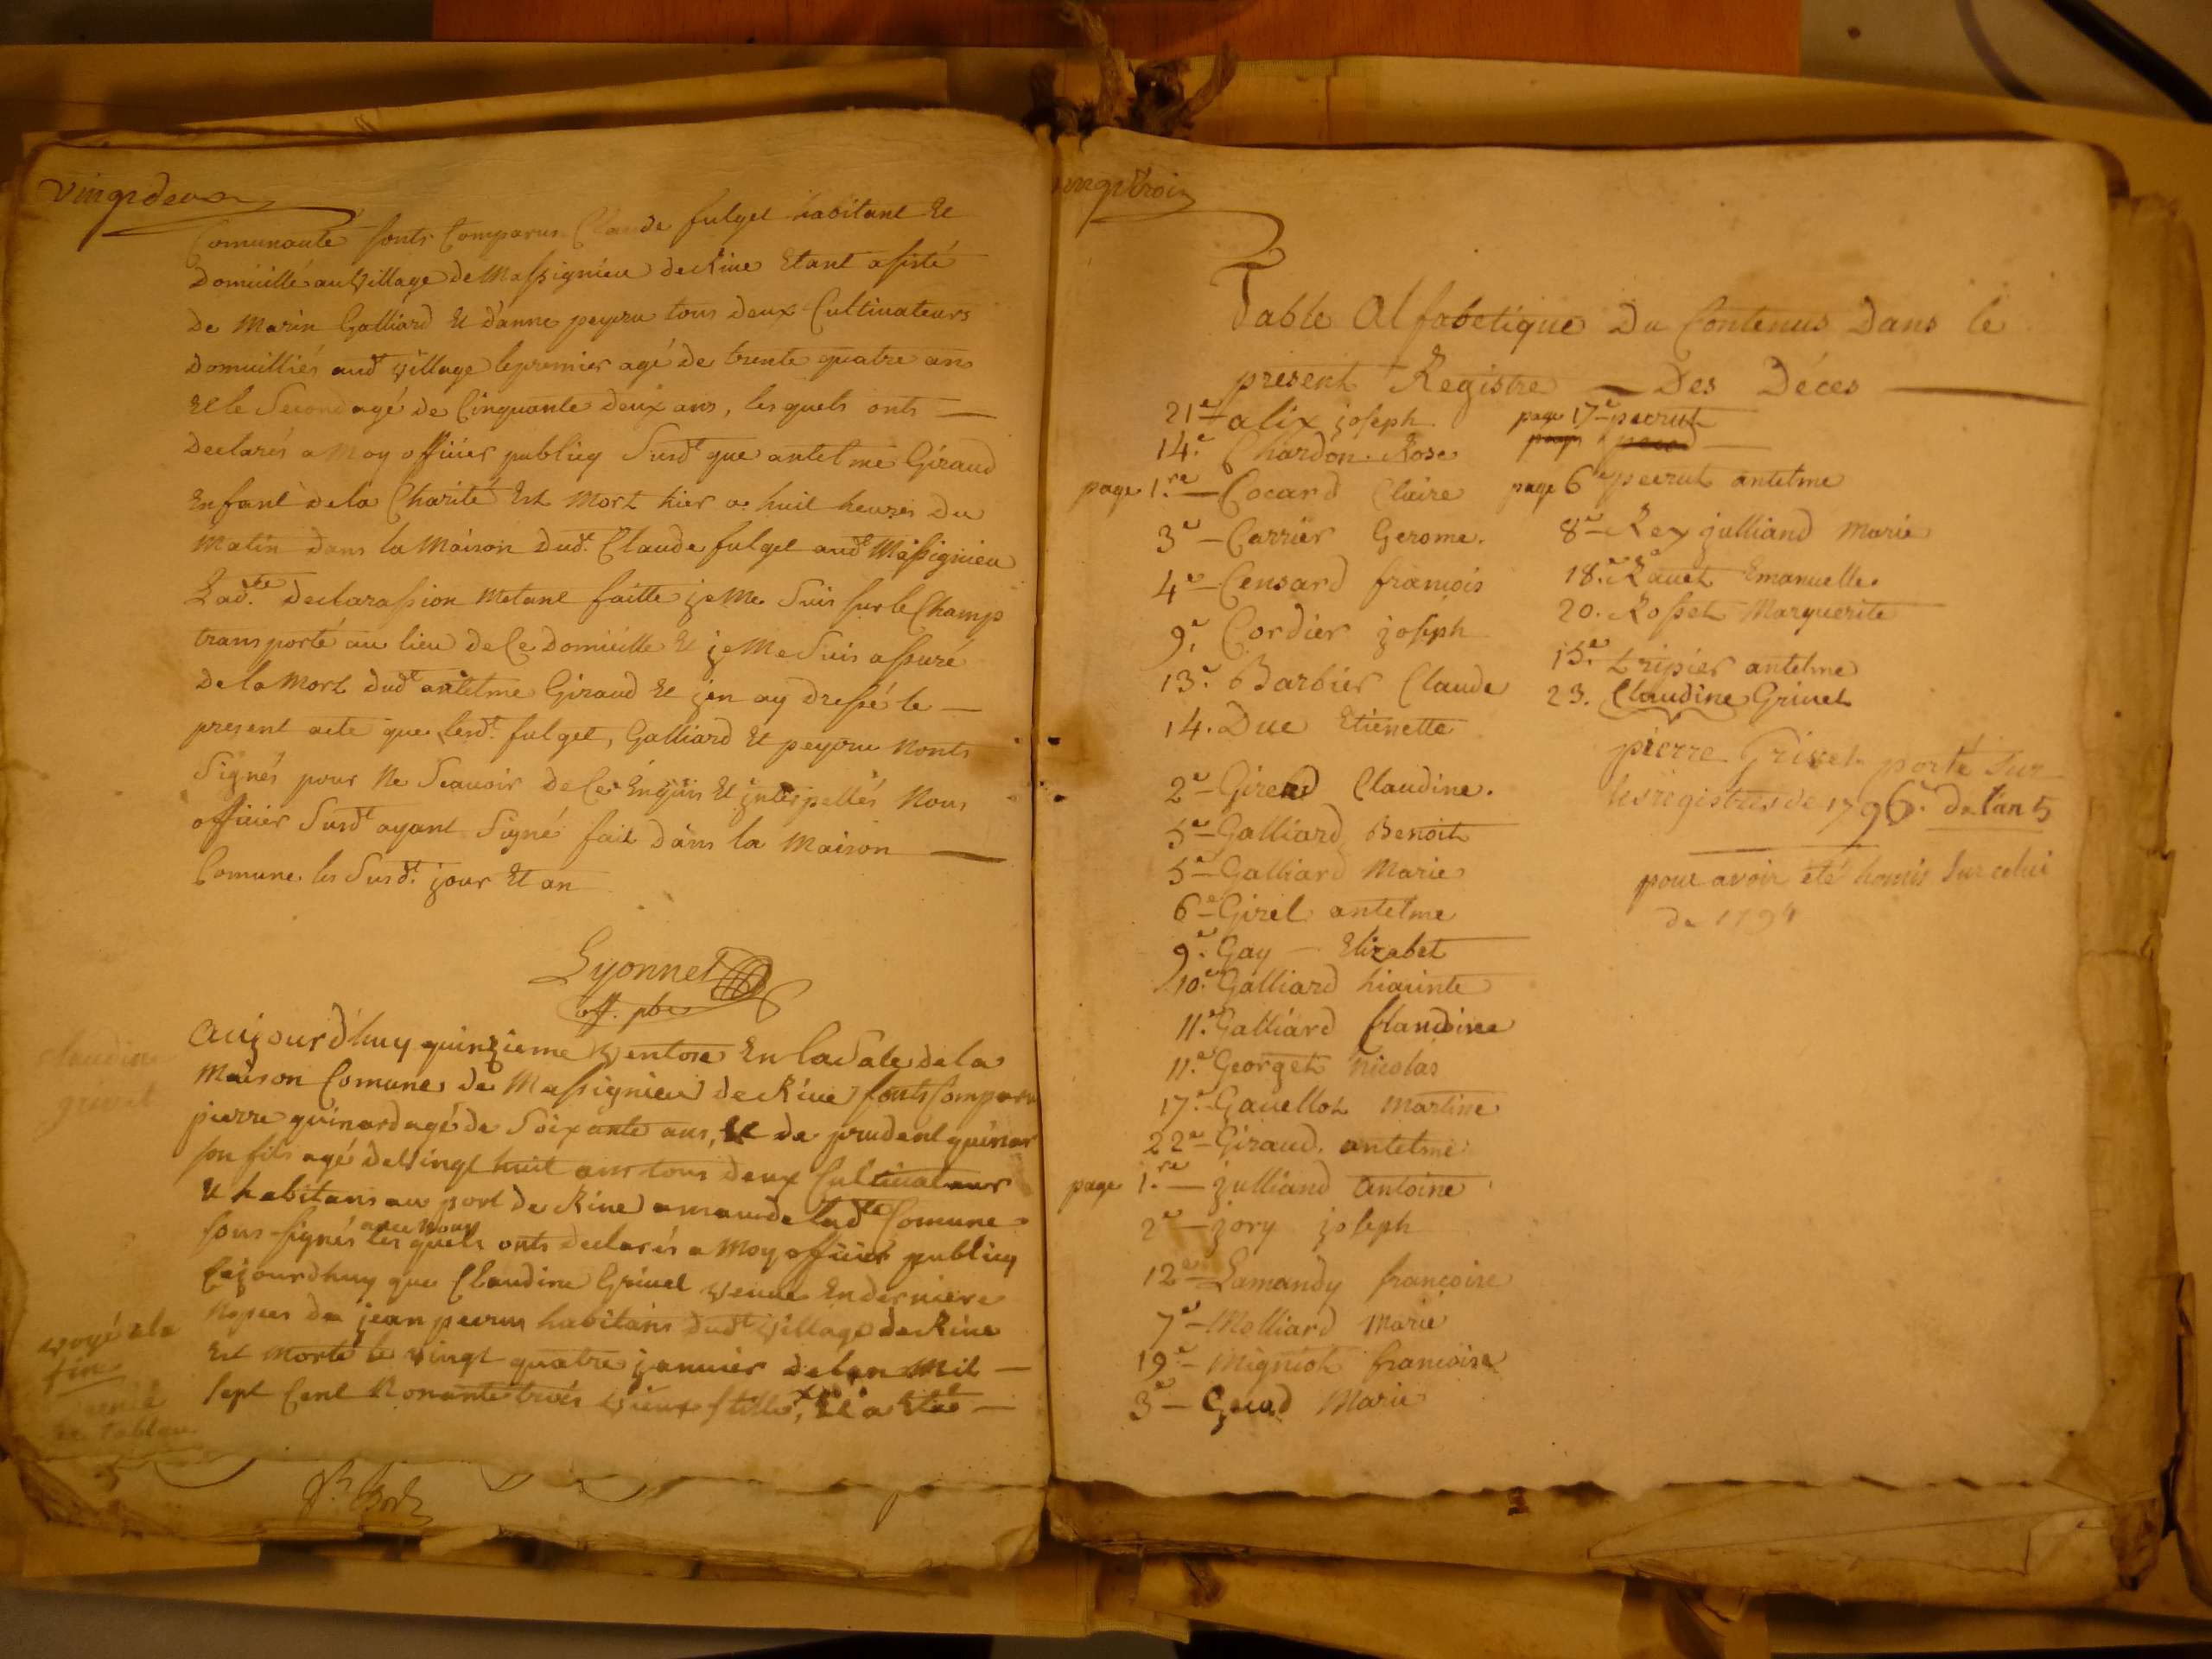 vingtdeux
Comunauté sonts Comparus Claude fulget habitant Et
Domicillié au village de Massignieu de Rive Etant assisté
De Marin Galliard Et d'anne peyru tous deux Cultivateurs
Domicilliés audt village le premier agé de trente quatre ans
Et le Second agé de Cinquante deux ans, les quels onts
Declarés a Moy officier publicq Susdt que antelme Giraud
Enfant de la Charité Est Mort hier a huit heures du
Matin dans la Maison dudt. Claude fulget audt Massignieu
Ladte. Declarassion Metant faitte je Me Suis sur le Champ
transporté au lieu de Ce Domicille Et je Me Suis assuré
De la Mort dudt antelme Giraud Et jen ay dressé le
present acte que lesdt. fulget, Galliard Et peyru Nonts
Signés pour Ne Scavoir de Ce Enquis Et interpellés Nous
officier Susdt ayant Signé fait Dans la Maison
Comune. les Susdt. jour Et an
Lyonnet
off. pbc
Claudine
grivet
Aujourdhuy quinzieme ventose En la Sale de la
Maison Comune de Massignieu de Rive sonts Comparu
pierre guinard agé de Soixante ans, Et de prudent guinar
son fils agé de vingt huit ans tous deux Cultivateur
Et habitans au port de Rive amau de ladte Comune
sous-signés avec Nous les quels onts declarés a Moy officier publicq
Cejourdhuy que Claudine Grivet veuve En derniere
Nopces de jean peerus habitans dudt village de Rive
Est Morte le vingt quatre janvier de lan Mil
Sept Cent Nonante trois vieux stille, Et a Eté
voyé a la
fin
tableau
vingttroix
Table Alfabetique Du Contenus Dans le
present Registre Des Déces
21e alix joseph
14.e Chardon Rose
page 1.re Cocard Claire
3e Carrier Gerome.
4e Censard francois
9e. Cordier joseph
13.e Barbier Claude
14. Duc Etienette
2e Gireud Claudine.
5e Galliard Benoit
5e Galliard Marie
6e Girel antelme
9.e Gay Elizabet
10.e Galliard hiacinte
11.e Galliard Claudine
11.e Georget Nicolas
17.e Gavellot Martine
22e Giraud. antelme
page 1.re julliand antoine
2e jory joseph
12e Lamandy francoise
7e Molliard Marie
19.e Migniot francoise
3e Guad Marie
page 17e peerut
page
page 6e peerut antelme
8e Rey julliand Marie
18.e Ravet Emanuelle
20. Rosset Marguerite
15.e tripier antelme
23. Claudine Grivet
pierre Grivet porté Sur
les registres de 1796. de l'an 5
pour avoir été homis sur celui
de 1794